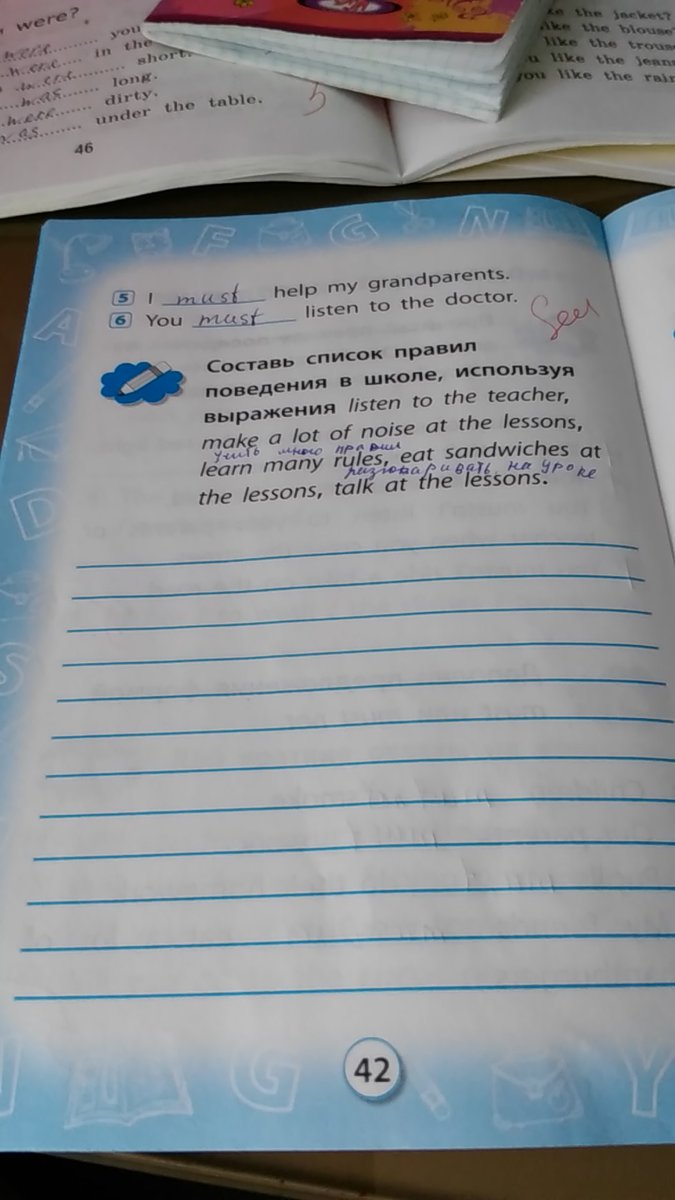 were?
were you
were in the
were short.
was long.
were dirty.
was under the table.
46
5
the jacket?
like the blouse
like the trous
u like the jeans
you like the rain
F G N
A
D
S
5 I must help my grandparents.
6 You must listen to the doctor.
See
Составь список правил
поведения в школе, используя
выражения listen to the teacher,
make a lot of noise at the lessons,
учить много правил
learn many rules, eat sandwiches at
разговаривать на уроке
the lessons, talk at the lessons.
42
G Y